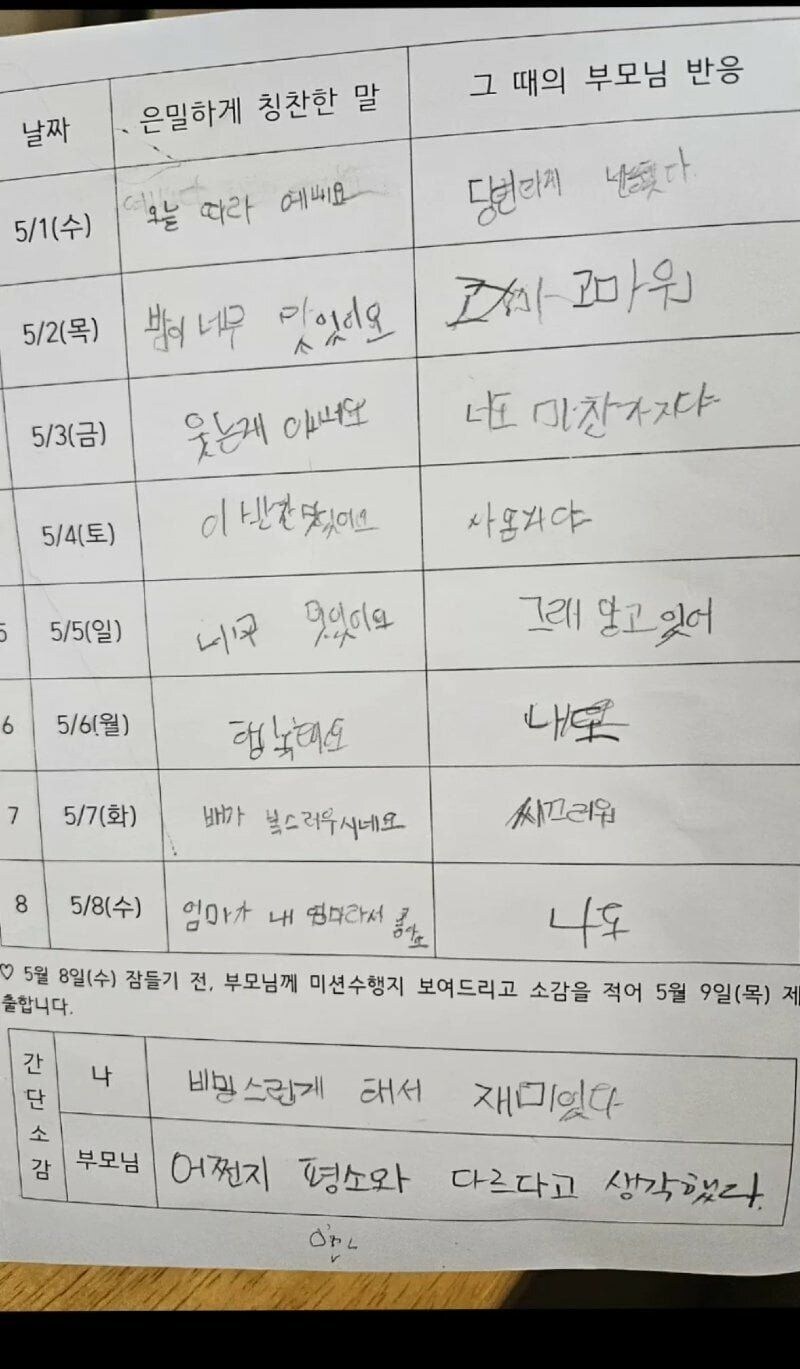 날짜 은밀하게 칭찬한 말 그 때의 부모님 반응
5/1(수) 오늘 따라 예뻐요
5/2(목) 밥이 너무 맛있어요 고마워
5/3(금) 너도 마찬가지야
5/4(토) 이 반찬 맛있어요
5 5/5(일) 너무 맛있어요 그래 알고 잇어
6 5/6(월) 행복해요 내도
7 5/7(화) 배가 복스러우시네요 씨끄러워
8 5/8(수) 엄마가 내 엄마라서 좋아요 나도
♡ 5월 8일(수) 잠들기 전, 부모님께 미션수행지 보여드리고 소감을 적어 5월 9일(목) 제
출합니다.
간단소감
나 비밍스런게 해서 재미있다
부모님 어쩐지 평소와 다르다고 생각했다.